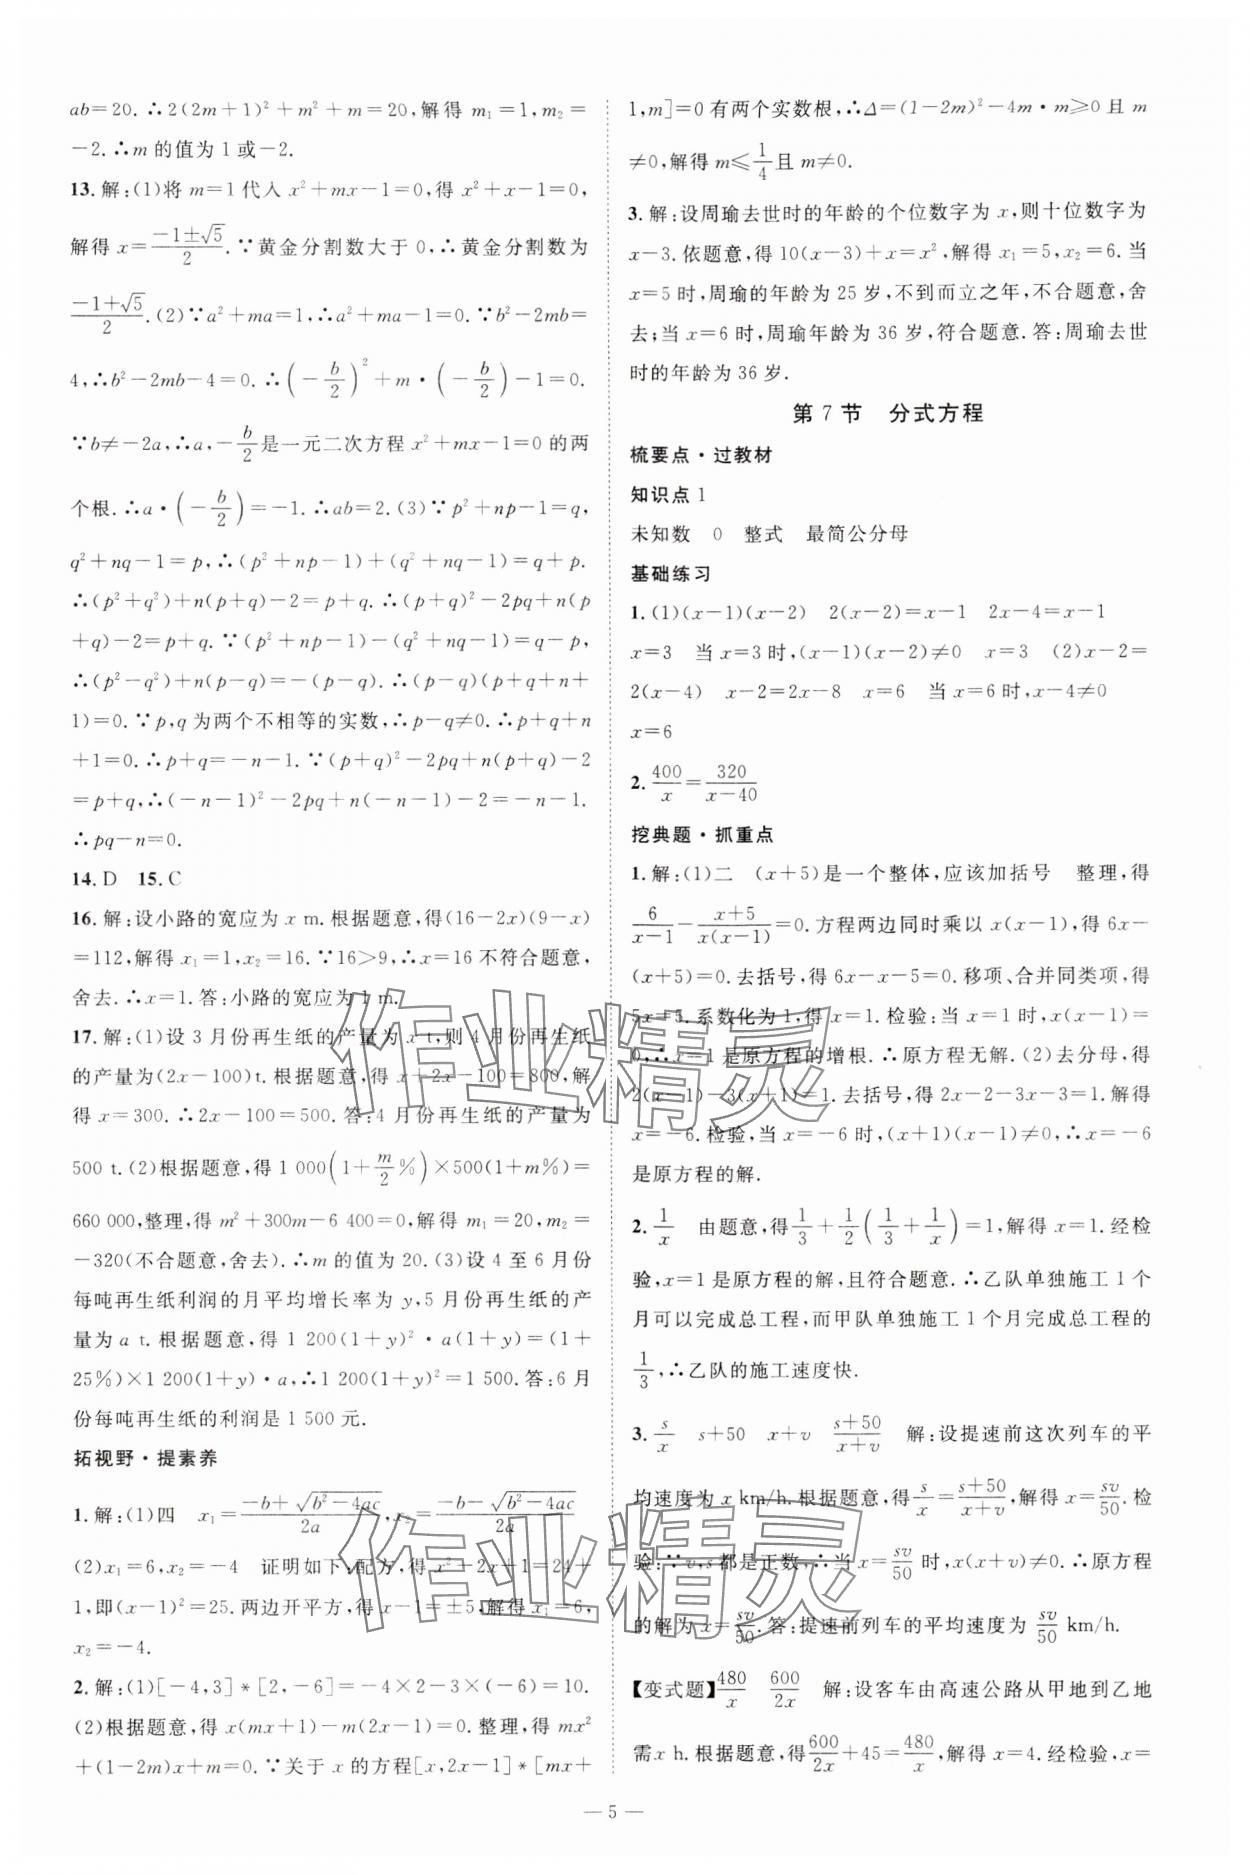 ab=20.∴2(2m+1)²+m²+m=20,解得 m₁=1,m₂=
-2.∴m的值为1或-2.
13.解:(1)将 m=1代入 x²+mx-1=0,得 x²+x-1=0,
解得 x=(-1±√5)/2.∵黄金分割数大于 0,∴黄金分割数为
(-1+√5)/2.(2)∵a²+ma=1,∴a²+ma-1=0.∵b²-2mb=
4,∴b²-2mb-4=0.∴(-b/2)²+m·(-b/2)-1=0.
∵b≠-2a,∴a,-b/2是一元二次方程 x²+mx-1=0 的两
个根.∴a·(-b/2)=-1.∴ab=2.(3)∵p²+np-1=q,
q²+nq-1=p,∴(p²+np-1)+(q²+nq-1)=q+p.
∴(p²+q²)+n(p+q)-2=p+q.∴(p+q)²-2pq+n(p
+q)-2=p+q.∵(p²+np-1)-(q²+nq-1)=q-p,
∴(p²-q²)+n(p-q)=-(p-q).∴(p-q)(p+q+n+
1)=0.∵p,q为两个不相等的实数,∴p-q≠0.∴p+q+n
+1=0.∴p+q=-n-1.∵(p+q)²-2pq+n(p+q)-2
=p+q,∴(-n-1)²-2pq+n(-n-1)-2=-n-1.
∴pq-n=0.
14.D 15.C
16.解:设小路的宽应为 x m.根据题意,得(16-2x)(9-x)
=112,解得 x₁=1,x₂=16.∵16>9,∴x=16 不符合题意,
舍去.∴x=1.答:小路的宽应为 1 m.
17.解:(1)设 3 月份再生纸的产量为 x t,则 4 月份再生纸
的产量为(2x-100)t.根据题意,得 x+2x-100=800,解
得 x=300.∴2x-100=500.答:4 月份再生纸的产量为
500 t.(2)根据题意,得 1 000(1+m/2%)×500(1+m%)=
660 000,整理,得 m²+300m-6 400=0,解得 m₁=20,m₂=
-320(不合题意,舍去).∴m的值为 20.(3)设 4 至 6 月份
每吨再生纸利润的月平均增长率为 y,5 月份再生纸的产
量为 a t.根据题意,得 1 200(1+y)²·a(1+y)=(1+
25%)×1 200(1+y)·a,∴1 200(1+y)²=1 500.答:6 月
份每吨再生纸的利润是 1 500 元.
拓视野·提素养
1.解:(1)四 x₁=(-b+√(b²-4ac))/2a,x₂=(-b-√(b²-4ac))/2a
(2)x₁=6,x₂=-4 证明如下:配方,得 x²-2x+1=24+
1,即(x-1)²=25.两边开平方,得 x-1=±5,解得 x₁=6,
x₂=-4.
2.解:(1)[-4,3]*[2,-6]=-4×2-3×(-6)=10.
(2)根据题意,得 x(mx+1)-m(2x-1)=0.整理,得 mx²
+(1-2m)x+m=0.∵关于 x 的方程[x,2x-1]*[mx+
1,m]=0有两个实数根,∴Δ=(1-2m)²-4m·m≥0且 m
≠0,解得 m≤1/4且 m≠0.
3.解:设周瑜去世时的年龄的个位数字为 x,则十位数字为
x-3.依题意,得 10(x-3)+x=x²,解得 x₁=5,x₂=6.当
x=5 时,周瑜的年龄为 25 岁,不到而立之年,不合题意,舍
去;当 x=6 时,周瑜年龄为 36 岁,符合题意.答:周瑜去世
时的年龄为 36 岁.
第 7 节 分式方程
梳要点·过教材
知识点 1
未知数 0 整式 最简公分母
基础练习
1.(1)(x-1)(x-2) 2(x-2)=x-1 2x-4=x-1
x=3 当 x=3 时,(x-1)(x-2)≠0 x=3 (2)x-2=
2(x-4) x-2=2x-8 x=6 当 x=6 时,x-4≠0
x=6
2.400/x=320/(x-40)
挖典题·抓重点
1.解:(1)二 (x+5)是一个整体,应该加括号 整理,得
6/(x-1)-(x+5)/(x(x-1))=0.方程两边同时乘以 x(x-1),得 6x-
(x+5)=0.去括号,得 6x-x-5=0.移项、合并同类项,得
5x=5.系数化为 1,得 x=1.检验:当 x=1 时,x(x-1)=
0,∴x=1 是原方程的增根.∴原方程无解.(2)去分母,得
2(x-1)-3(x+1)=1.去括号,得 2x-2-3x-3=1.解得
x=-6.检验,当 x=-6 时,(x+1)(x-1)≠0,∴x=-6
是原方程的解.
2.1/x 由题意,得1/3+1/2(1/3+1/x)=1,解得 x=1.经检
验,x=1 是原方程的解,且符合题意.∴乙队单独施工 1 个
月可以完成总工程,而甲队单独施工 1 个月完成总工程的
1/3,∴乙队的施工速度快.
3.s/x s+50 x+v (s+50)/(x+v) 解:设提速前这次列车的平
均速度为 x km/h.根据题意,得s/x=(s+50)/(x+v),解得 x=sv/50.检
验:∵v,s都是正数,∴当 x=sv/50时,x(x+v)≠0.∴原方程
的解为 x=sv/50.答:提速前列车的平均速度为 sv/50 km/h.
【变式题】480/x 600/2x 解:设客车由高速公路从甲地到乙地
需 x h.根据题意,得600/2x+45=480/x,解得 x=4.经检验,x=
— 5 —
作业精灵
作业精灵